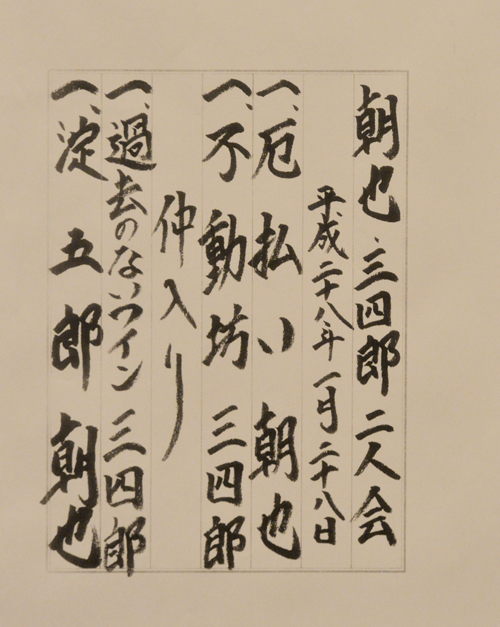 朝也・三四郎二人会
平成二十八年一月二十八日
一、厄払い 朝也
一、不動坊 三四郎
仲入り
一、過去のないワイン 三四郎
一、淀五郎 朝也